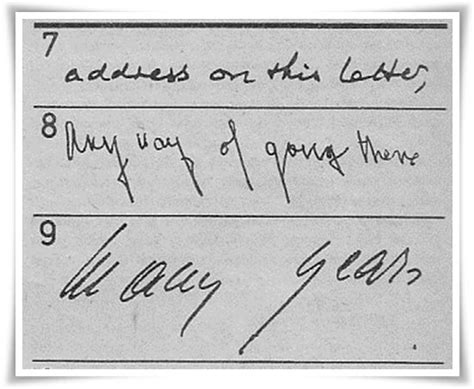 7
address on this letter,
8
Any way of going there
9
Many years